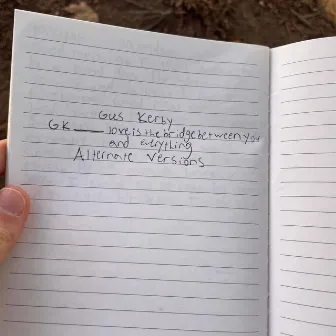 Gus Kerby
GK ____ love is the bridge between you
and everything
Alternate Versions